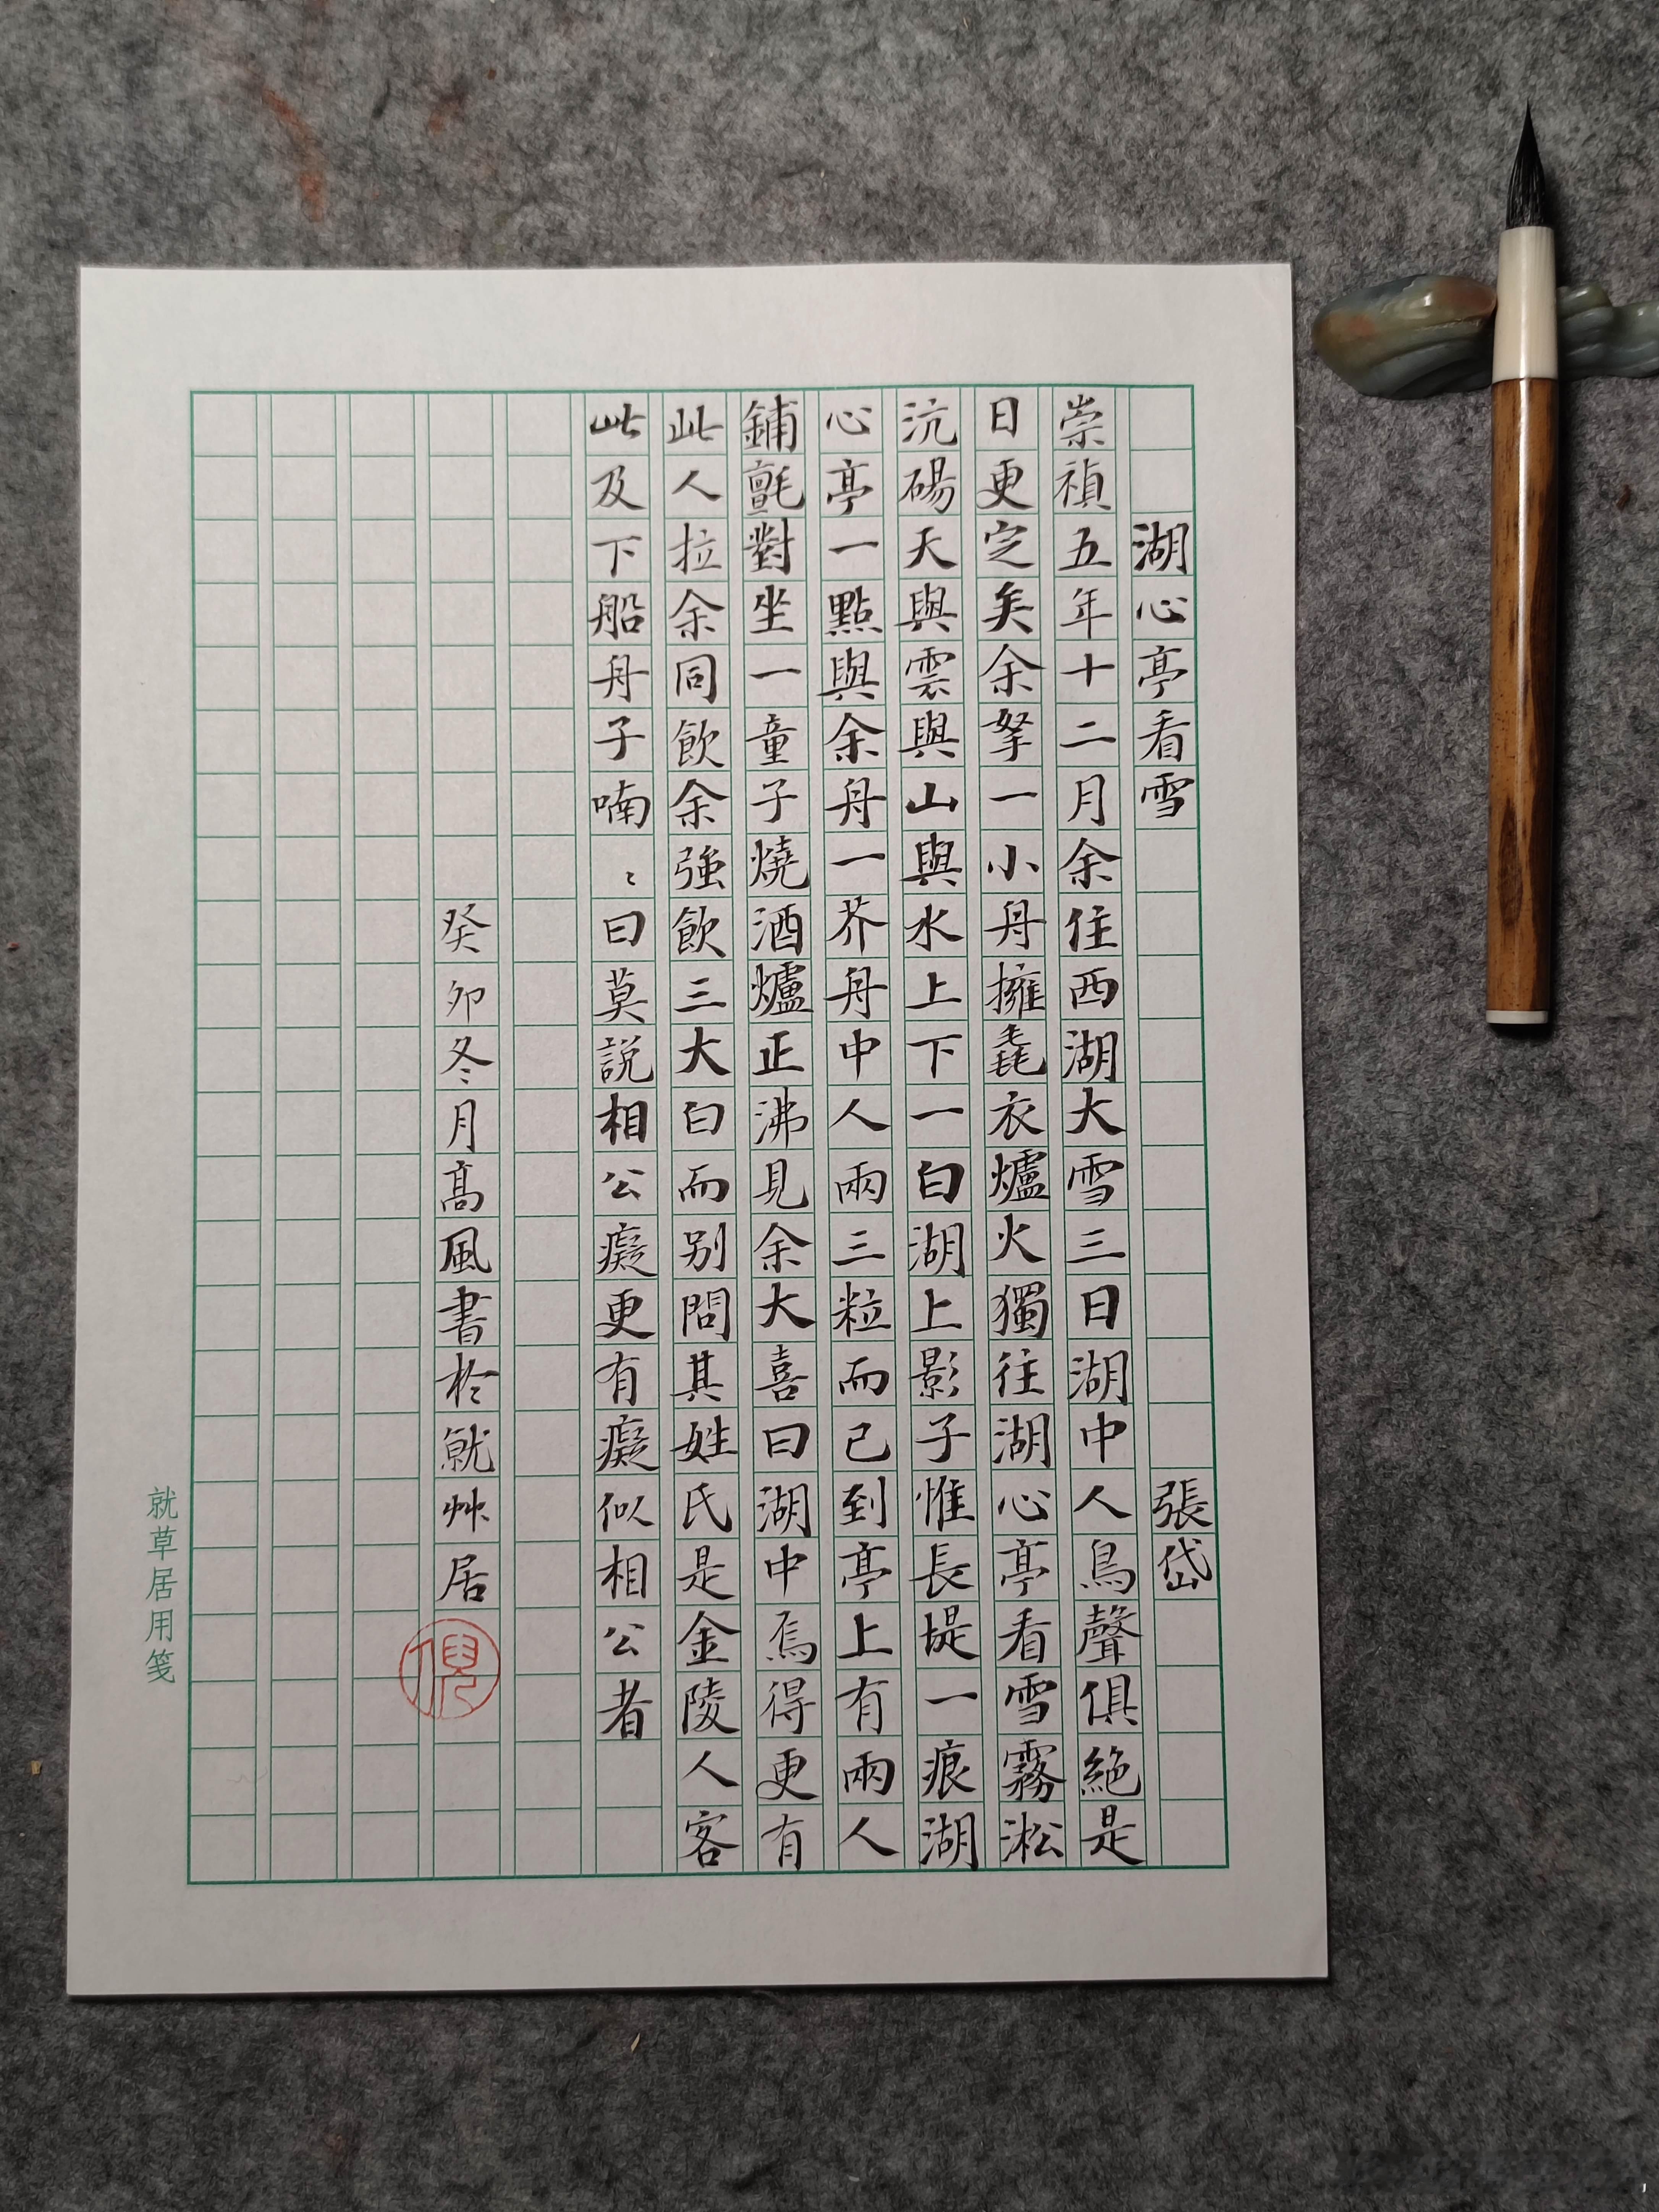 湖心亭看雪 張岱
崇禎五年十二月余住西湖大雪三日湖中人鳥聲俱絶是
日更定矣余拏一小舟擁毳衣爐火獨往湖心亭看雪霧淞
沆碭天與雲與山與水上下一白湖上影子惟長堤一痕湖
心亭一點與余舟一芥舟中人兩三粒而已到亭上有兩人
鋪氈對坐一童子燒酒爐正沸見余大喜曰湖中焉得更有
此人拉余同飲余強飲三大白而别問其姓氏是金陵人客
此及下船舟子喃〻曰莫説相公癡更有癡似相公者
癸卯冬月髙風書於就艸居
倪
就草居用笺